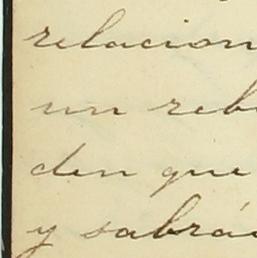 relacion
un reb
den que
y sabrá